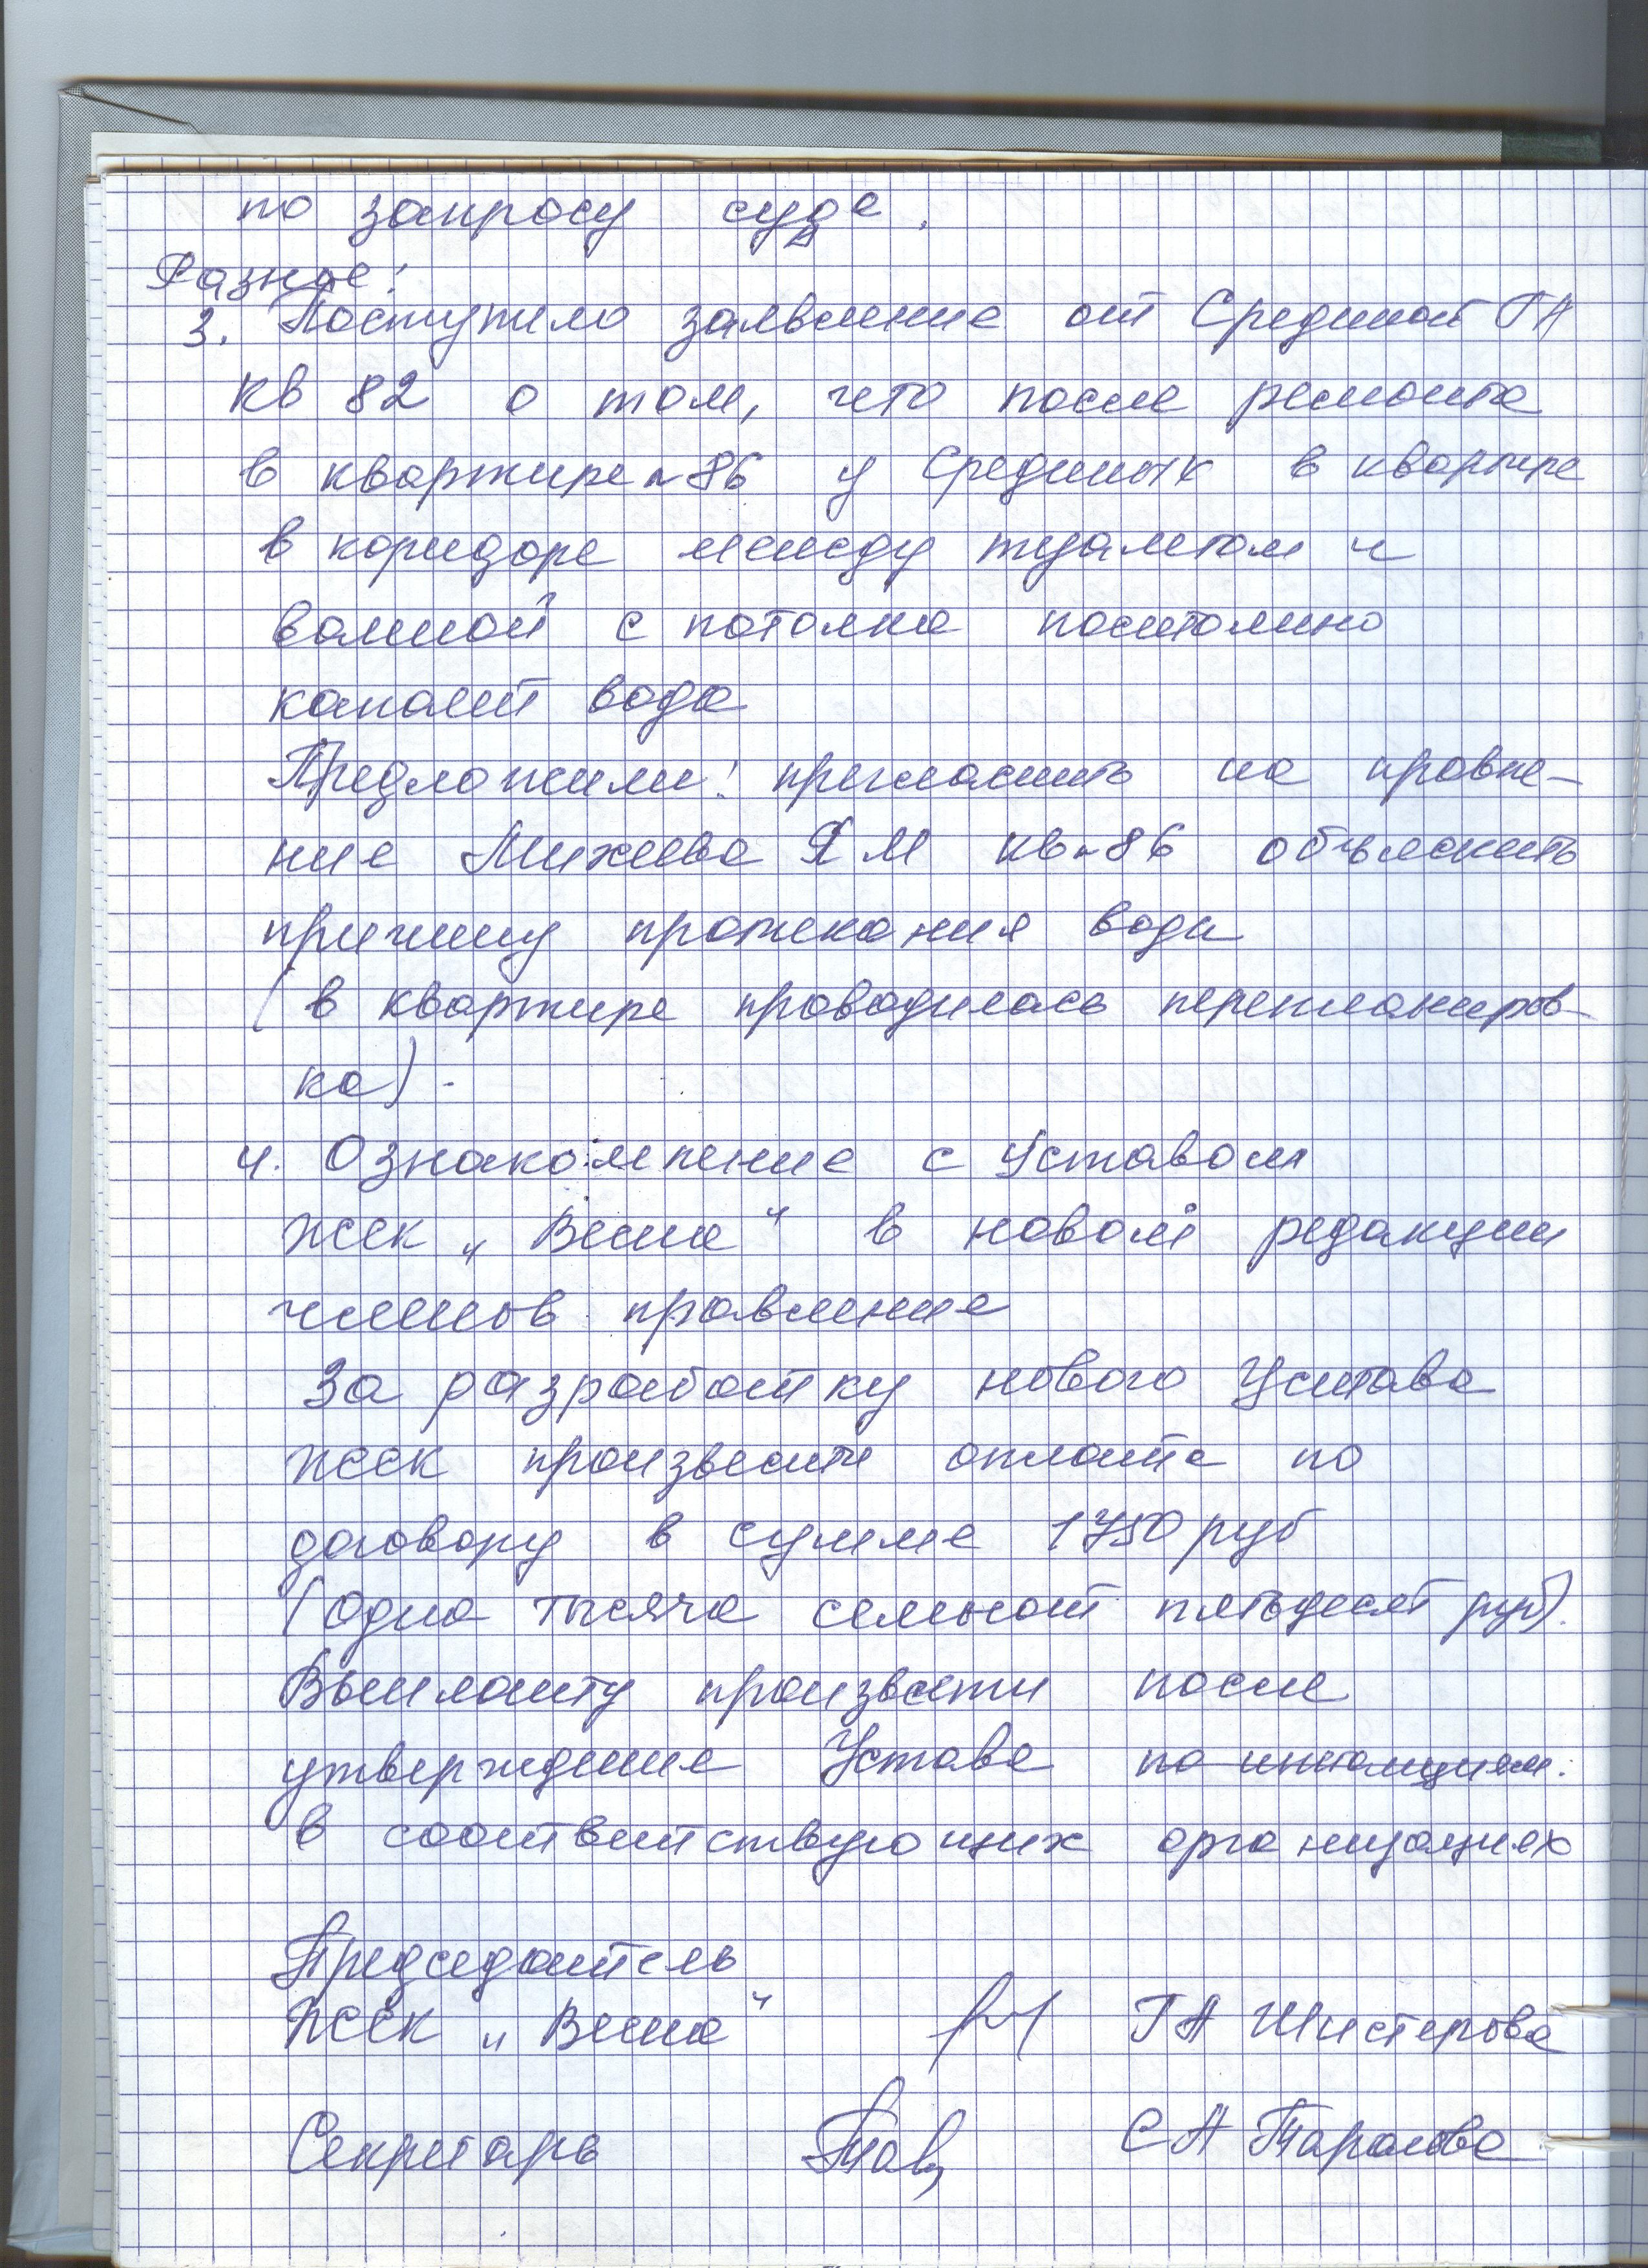 по запросу суда.
Разное:
3. Поступило заявление от Срединой ГА
кв 82 о том, что после ремонта
в квартире №86 у Срединых в квартире
в коридоре между туалетом и
ванной с потолка постоянно
капает вода
Предложили: пригласить на правле-
ние Михеева ЯМ кв №86 объяснить
причину протекания воды
(в квартире проводилась перепланиров-
ка).
4. Ознакомление с Уставом
ЖСК „Весна“ в новой редакции
членов правления
За разработку нового Устава
ЖСК произвести оплата по
договору в сумме 1750 руб
(Одна тысяча семьсот пятьдесят руб).
Выплату произвести после
утверждение Устава
в соответствующих организациях
Председатель
ЖСК „Весна“ ГА Шистерова
Секретарь СА